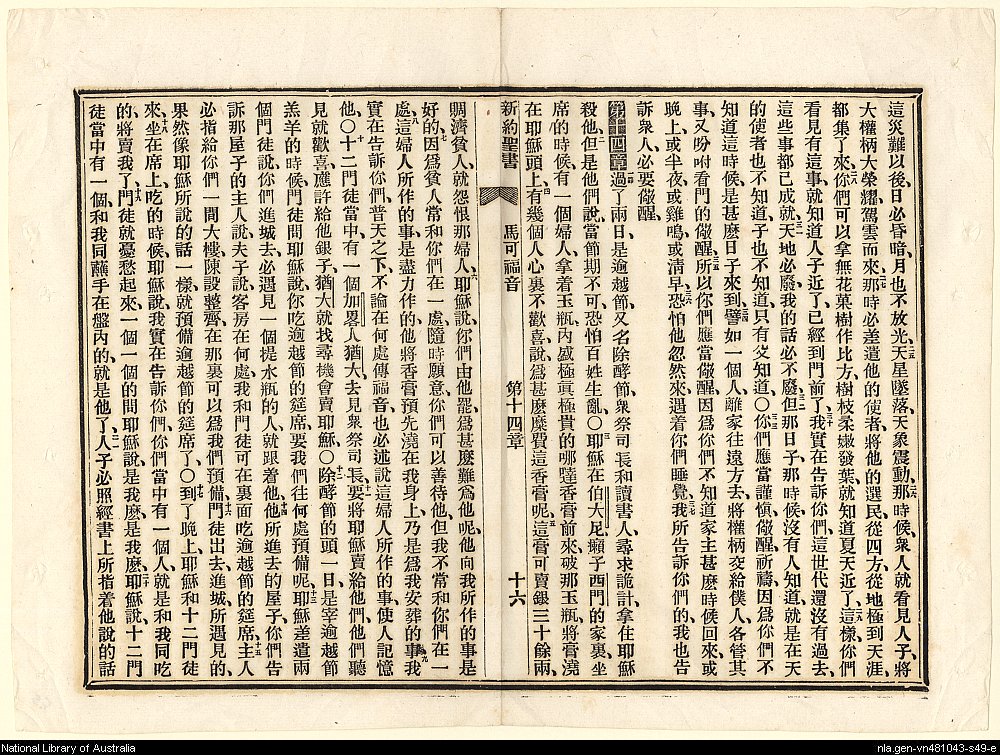 這災難以後、日必昏暗、月也不放光、天星墜落、天象震動、那時候、衆人就看見人子、將
大權柄大榮耀、駕雲而來、那時必差遣他的使者、將他的選民、從四方、從地極到天涯、
都集了來、你們可以拿無花菓樹作比方、樹枝柔嫩發葉、就知道夏天近了、這樣、你們
看見有這事、就知道人子近了、已經到門前了、我實在告訴你們、這世代還沒有過去、
這些事都已成就、天地必廢、我的話必不廢、但那日子、那時候、沒有人知道、就是在天
的使者也不知道、子也不知道、只有父知道、〇你們應當謹愼儆醒祈禱、因爲你們不
知道這時候是甚麼日子來到、譬如一個人離家往遠方去、將權柄交給僕人、各管其
事、又吩咐看門的儆醒、所以你們應當儆醒、因爲你們不知道家主甚麼時候回來、或
晚上、或半夜、或雞鳴、或淸早、恐怕他忽然來、遇着你們睡覺、我所告訴你們的、我也告
訴衆人、必要儆醒、
第十四章 過了兩日、是逾越節、又名除酵節、衆祭司長和讀書人、尋求詭計拿住耶穌
殺他、但是他們說、當節期不可、恐怕百姓生亂、〇耶穌在伯大尼、癩子西門的家裏坐
席的時候、有一個婦人、拿着玉瓶、內盛極眞極貴的哪噠香膏前來、破那玉瓶、將膏澆
在耶穌頭上、有幾個人心裏不歡喜、說、爲甚麼糜費這香膏呢、這膏可賣銀三十餘兩、
新約聖書 馬可福音 第十四章 十六
賙濟貧人、就怨恨那婦人、耶穌說、你們由他罷、爲甚麼難爲他呢、他向我所作的事是
好的、因爲貧人常和你們在一處、隨時願意、你們可以善待他、但我不常和你們在一
處、這婦人所作的事、是盡力作的、他將香膏預先澆在我身上、乃是爲我安葬的事、我
實在告訴你們、普天之下、不論在何處傳福音、也必述說這婦人所作的事、使人記憶
他、〇十二門徒當中、有一個加畧人猶大、去見衆祭司長、要將耶穌賣給他們、他們聽
見就歡喜、應許給他銀子、猶大就找尋機會賣耶穌、〇除酵節的頭一日、是宰逾越節
羔羊的時候、門徒問耶穌說、你吃逾越節的筵席、要我們往何處預備呢、耶穌差遣兩
個門徒說、你們進城去、必遇見一個提水瓶的人、就跟着他、他所進去的屋子、你們告
訴那屋子的主人說、夫子說、客房在何處、我和門徒可在裏面吃逾越節的筵席、主人
必指給你們一間大樓、陳設整齊、在那裏可以爲我們預備、門徒出去、進城、所遇見的、
果然像耶穌所說的話一樣、就預備逾越節的筵席了、〇到了晚上、耶穌和十二門徒
來、坐在席上吃的時候、耶穌說、我實在告訴你們、你們當中有一個人、就是和我同吃
的、將賣我了、門徒就憂愁起來、一個一個的問耶穌說、是我麼、是我麼、耶穌說、十二門
徒當中、有一個和我同蘸手在盤內的、就是他了、人子必照經書上所指着他說的話
National Library of Australia
nla.gen-vn481043-s49-e